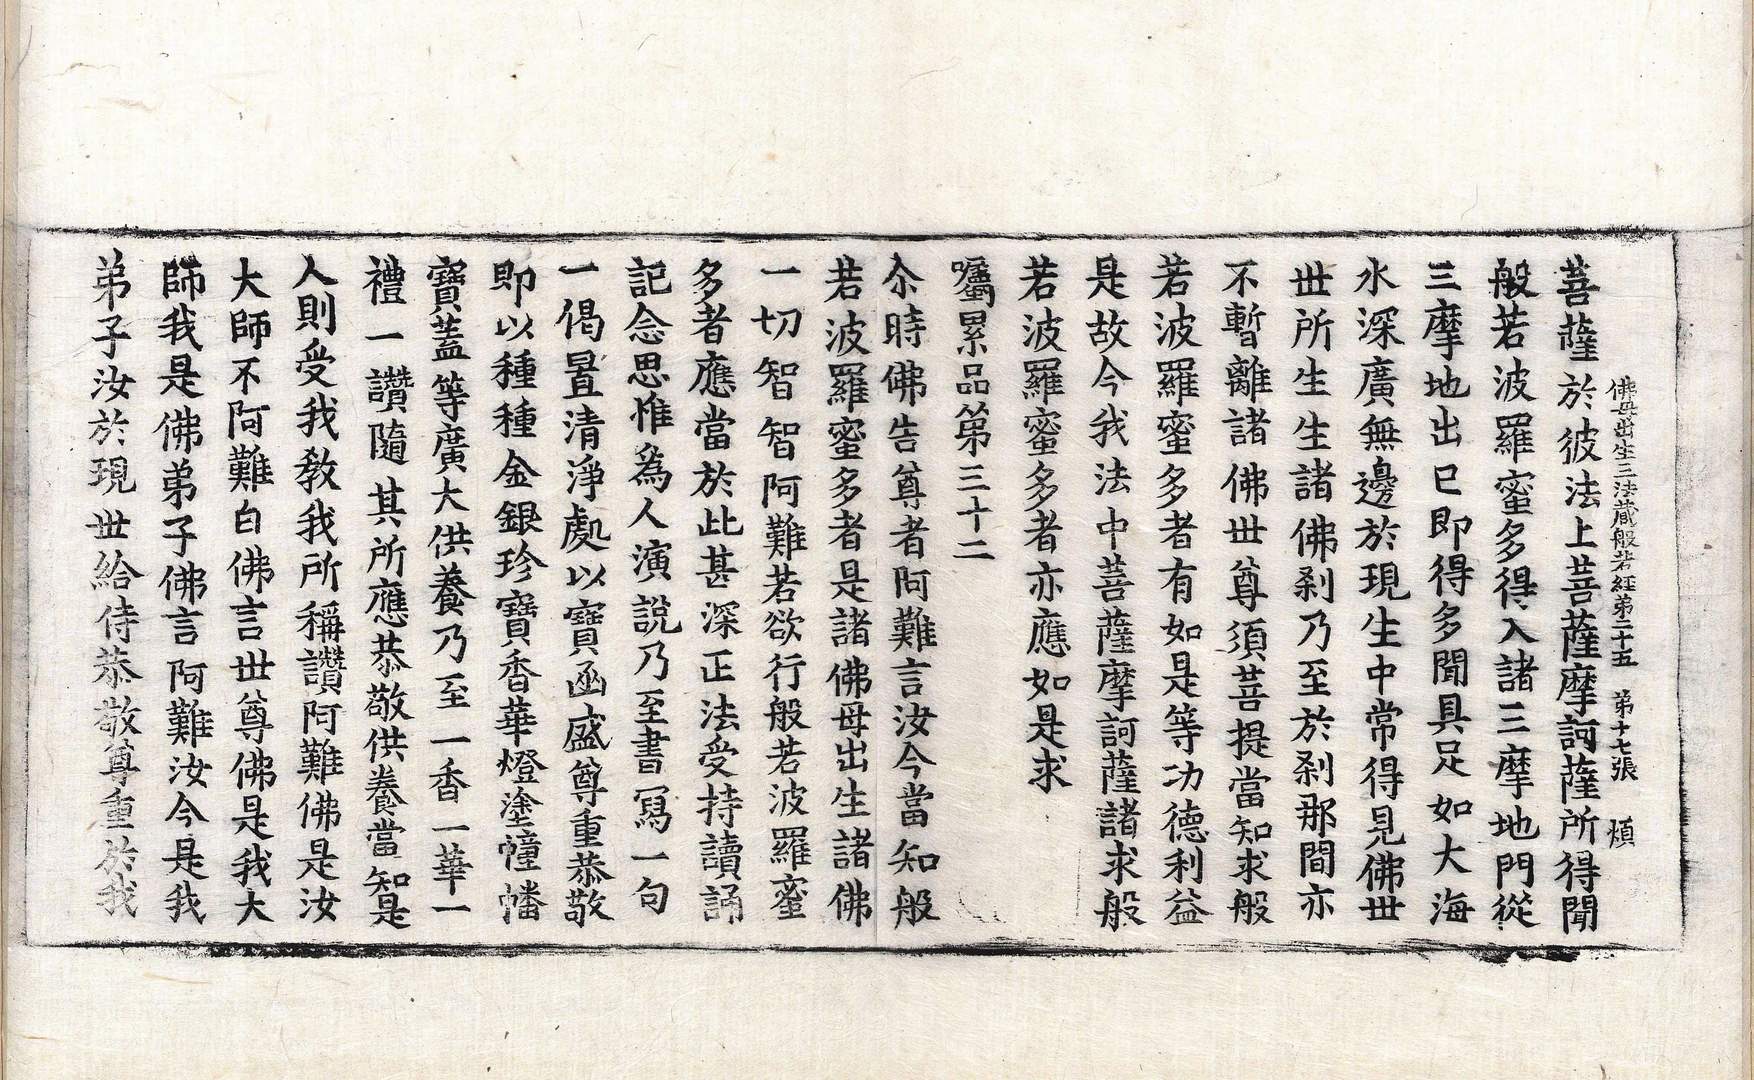 佛母出生三法藏般若經第二十五　第十七張　煩
菩薩於彼法上菩薩摩訶薩所得聞
般若波羅蜜多得入諸三摩地門從
三摩地出已即得多聞具足如大海
水深廣無邊於現生中常得見佛世
世所生生諸佛剎乃至於剎那間亦
不暫離諸佛世尊須菩提當知求般
若波羅蜜多者有如是等功德利益
是故今我法中菩薩摩訶薩諸求般
若波羅蜜多者亦應如是求
囑累品第三十二
尒時佛告尊者阿難言汝今當知般
若波羅蜜多者是諸佛母出生諸佛
一切智智阿難若欲行般若波羅蜜
多者應當於此甚深正法受持讀誦
記念思惟為人演說乃至書寫一句
一偈置清淨處以寶函盛尊重恭敬
即以種種金銀珍寶香華燈塗幢幡
寶蓋等廣大供養乃至一香一華一
禮一讚隨其所應恭敬供養當知是
人則受我教我所稱讚阿難佛是汝
大師不阿難白佛言世尊佛是我大
師我是佛弟子佛言阿難汝今是我
弟子汝於現世給侍恭敬尊重於我